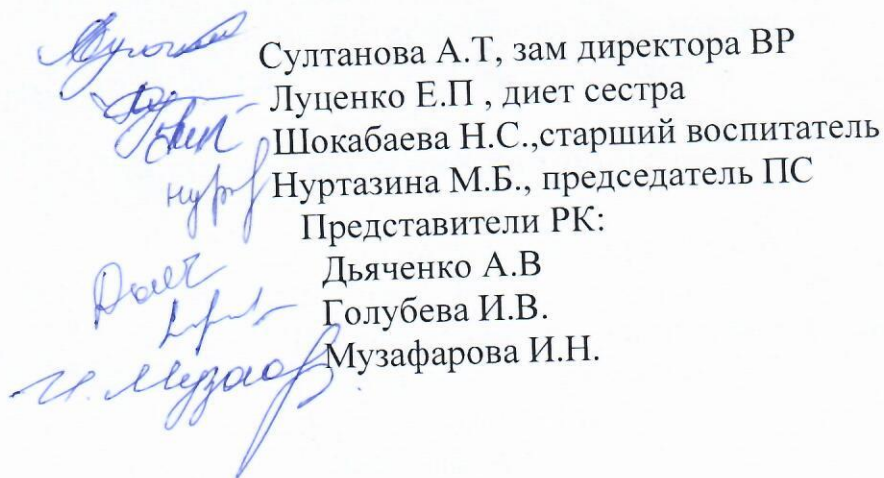 Султанова А.Т, зам директора ВР
Луценко Е.П , диет сестра
Шокабаева Н.С.,старший воспитатель
Нуртазина М.Б., председатель ПС
Представители РК:
Дьяченко А.В
Голубева И.В.
Музафарова И.Н.